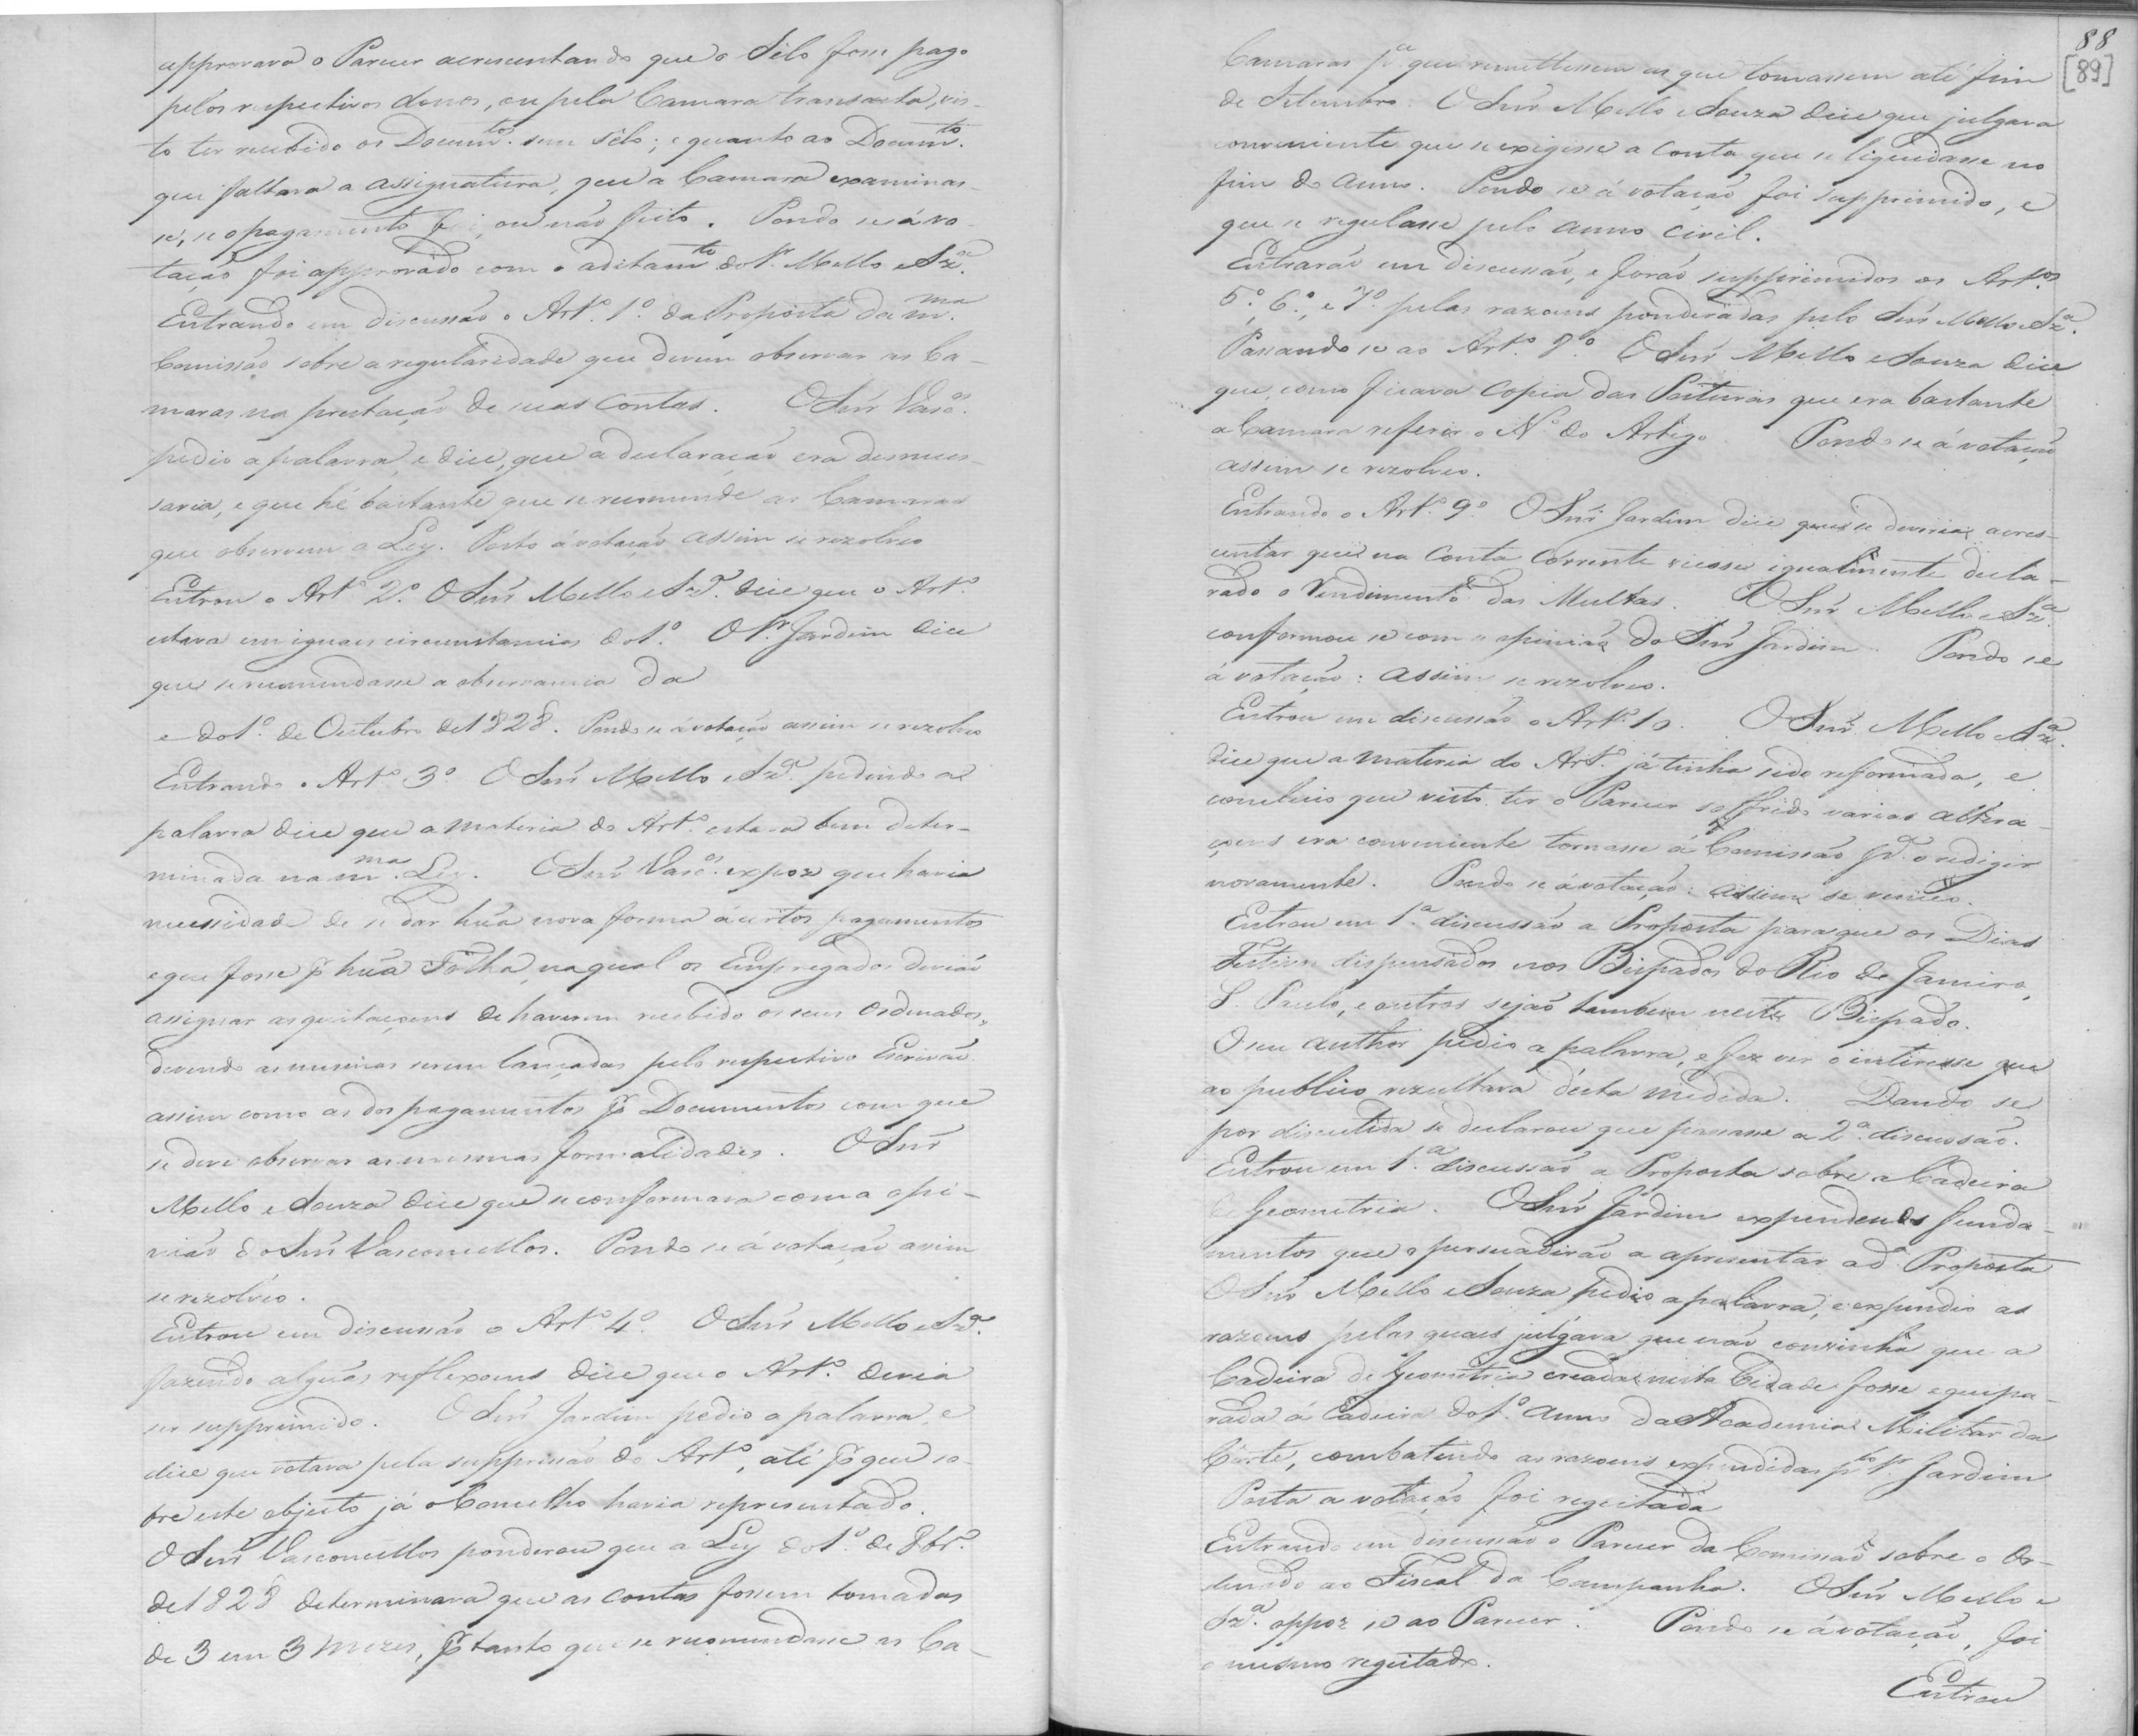 approvava o Parecer acrescentando que o Sêlo fosse pago
pelos respectivos donos, ou pela Camara transacta, vis-
to ter recebido os Docum.tos sem sêlo; e quanto ao Docum.to
que faltava a assignatura, que a Camara examinas-
se, se o pagamento foi, ou não feito. Pondo se á vo-
tação foi approvado com o aditam.to do Sr. Mello e Sz.a
Entrando em discussão o Art.o 1.o da Proposta da m.ma
Comissão sobre a regularidade que devem observar as Ca-
maras na prestação de suas Contas. O Snr Vasc.os
pedio a palavra, e dice, que a declaração era desneces-
saria, e que hé bastante que se recomende as Camaras
que observem a Ley. Posto á votação assim se rezolveo
Entrou o Art.o 2.o O Snr Mello e Sz.a dice que o Art.o
estava em iguaes circunstancias do 1.o O Sr. Jardim dice
que se recomendasse a observancia da
e do 1.o de Outubro de 1828. Pondo se á votação assim se rezolveo
Entrando o Art.o 3.o O Snr Mello e Sz.a pedindo a
palavra dice que a materia do Art.o estava bem deter-
minada na m.ma Ley. O Snr Vasc.os expoz que havia
necessidade de se dar hũa nova forma á certos pagamentos
e que fosse p.r hũa Folha, na qual os Empregados devião
assignar as quitaçoens de haverem recebido os seus Ordenados,
devendo as mesmas serem lançadas pelo respectivo Escrivão
assim como as dos pagamentos p.r Documentos com que
se deve observar as mesmas formalidades. O Snr
Mello e Souza dice que se conformava com a opi-
nião do Snr Vasconcellos. Pondo se á votação assim
se rezolveo.
Entrou em discussão o Art.o 4.o O Snr Mello e Sz.a
fazendo algũas reflexoens dice que o Art.o devia
ser supprimido. O Snr Jardim pedio a palavra, e
dice que votava pela suppressão do Art.o, até p.r que so-
bre este objecto já o Concelho havia representado.
O Snr Vasconcellos ponderou que a Ley do 1.o de 8br.o
de 1828 determinava que as contas fossem tomadas
de 3 em 3 mezes, p.r tanto que se recomendasse as Ca-
88
[89]
Camaras p.a que remettessem as que tomassem até fim
de Setembro. O Snr Mello e Souza dice que julgava
conveniente que se exigisse a Conta que se liquidasse no
fim do anno. Pondo se á votação foi supprimido, e
que se regulasse pelo anno Civil.
Entrarão em discussão, e forão supprimidos os Art.os
5.o, 6.o, e 7.o pelas razoens ponderadas pelo Snr Mello e Sz.a
Passando se ao Art.o 8.o O Snr Mello e Souza dice
que, como ficava Copia das Posturas que era bastante
a Camara referir o N.o do Artigo Pondo se á votação
assim se rezolveo.
Entrando o Art.o 9.o O Snr Jardim dice que se deveria acres-
centar que na Conta Corrente viesse igualmente decla-
rado o Rendimento das Multas. O Snr Mello e Sz.a
conformou se com a opinião do Snr Jardim. Pondo se
á votação: assim se rezolveo.
Entrou em discussão o Art.o 10. O Snr Mello e Sz.a
dice que a materia do Art.o já tinha sido reformada, e
concluio que visto ter o Parecer soffrido varias altera-
çoens era conveniente tornasse á Comissão p.a o redigir
novamente. Pondo se á votação: assim se venceo.
Entrou em 1.a discussão a Proposta para que os Dias
Festivos dispensados nos Bispados do Rio de Janeiro,
S. Paulo, e outros sejão tambem neste Bispado.
O seu author pedio a palavra, e fez ver o interesse que
ao publico rezultava d'esta medida. Dando se
por discutida se declarou que passasse a 2.a discussão.
Entrou em 1.a discussão a Proposta sobre a Cadeira
de Geometria. O Snr Jardim expendendo funda-
mentos que o persuadirão a apresentar a d.a Proposta
O Snr Mello e Souza pedio a palavra, e expendio as
razoens pelas quaes julgava que não convinha que a
Cadeira de Geometria creada nesta Cidade fosse equipa-
rada á Cadeira do 1.o anno da Academia Militar da
Côrte, combatendo as razoens expendidas p.lo Sr. Jardim
Posta a votação foi regeitada
Entrando em discussão o Parecer da Comissão sobre o Or-
denado ao Fiscal da Campanha. O Snr Mello e
Sz.a oppoz se ao Parecer. Pondo se á votação, foi
o mesmo regeitado.
Entrou